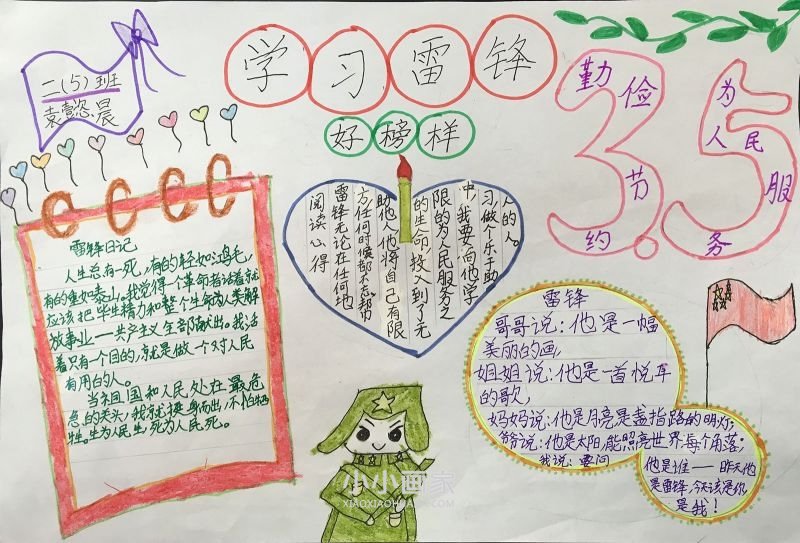 学习雷锋
好榜样
二(5)班
袁懿晨
3.5
勤俭节约
为人民服务
雷锋日记
人生总有一死,有的轻如鸿毛,
有的重如泰山。我觉得一个革命者活着就
应该把毕生精力和整个生命为人类解
放事业——共产主义全部献出。我活
着只有一个目的,就是做一个对人民
有用的人。
当祖国和人民处在最危
急的关头,我就挺身而出,不怕牺
牲。生为人民生,死为人民死。
阅读心得
雷锋无论在任何地
方,任何时候都不忘帮
助他人,他将自己有限
的生命,投入到了无
限的为人民服务之
中,我要向他学
习,做个乐于助
人的人。
雷锋
哥哥说:他是一幅
美丽的画,
姐姐说:他是一首悦耳
的歌,
妈妈说:他是月亮是盏指路的明灯;
爷爷说:他是太阳,能照亮世界每个角落;
我说:要问
他是谁——昨天他
是雷锋,今天该是你
是我!
小小画家